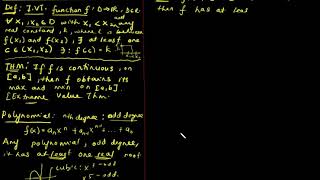 Def: I.V.T. function f: D→ℝ, D⊆ℝ
∀ x₁, x₂ ∈ D with x₁ < x₂ and
real constant k, where k is between
f(x₁) and f(x₂), ∃ at least one
c ∈ (x₁, x₂) ∋: f(c) = k
THM: If f is continuous on
[a,b], then f obtains its
max and min on [a,b].
[Extreme Value Thm.
Polynomial: nth degree: odd degree
f(x) = aₙxⁿ + aₙ₋₁xⁿ⁻¹ ... + a₀
Any polynomial, odd degree,
it has at least one real root
cubic: x³ → odd
x⁵ → odd.
then f has at leas